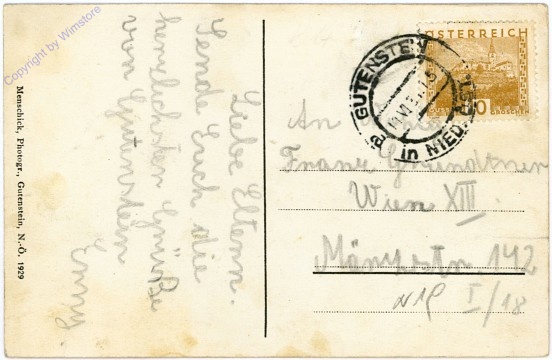 Copyright by Wimstore
Liebe Eltern.
Sende Euch die
herzlichsten Grüße
von Gutenstein
Emmy.
Menschick, Photogr., Gutenstein, N.-Ö. 1929
ÖSTERREICH
GROSCHEN
GUTENSTEIN
in NIED.
An
Franz
Wien XIII.
142
I/18